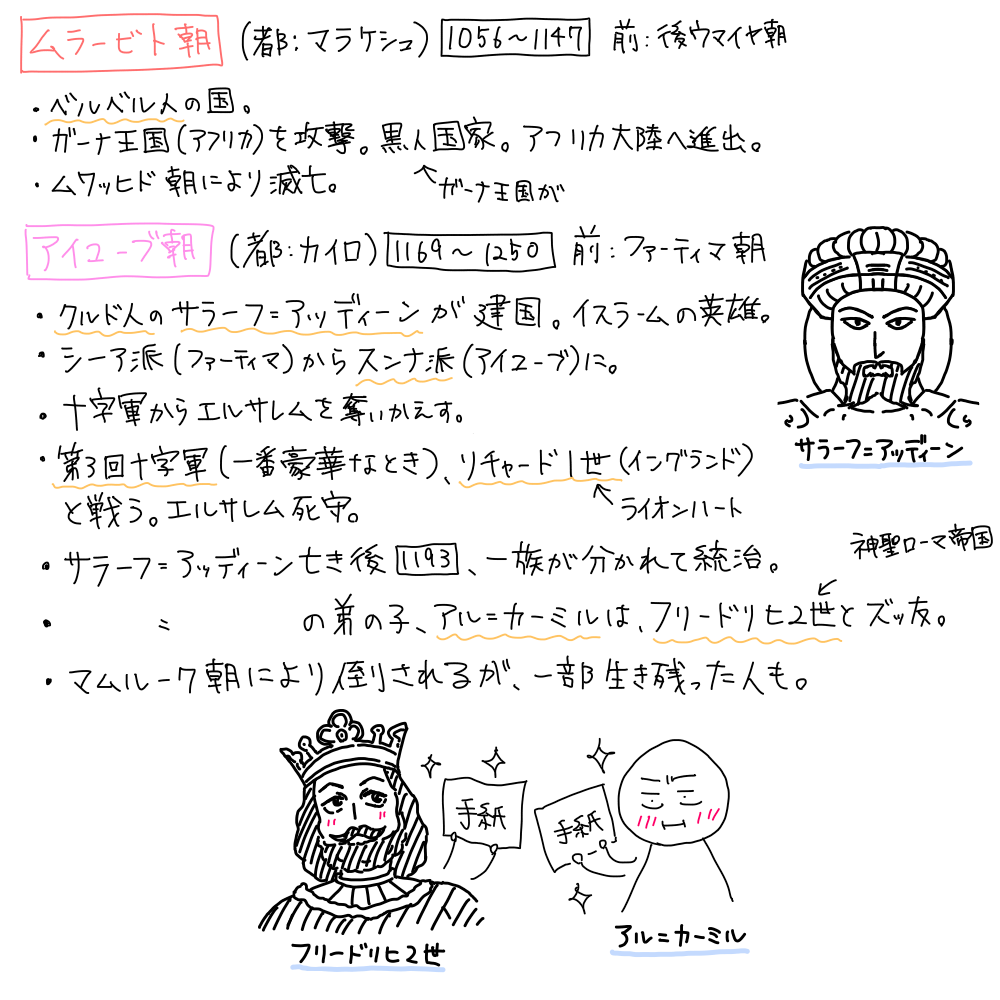 ムラービト朝 (都:マラケシュ) 1056〜1147 前:後ウマイヤ朝
・ベルベル人の国。
・ガーナ王国(アフリカ)を攻撃。黒人国家。アフリカ大陸へ進出。
・ムワッヒド朝により滅亡。
ガーナ王国が
アイユーブ朝 (都:カイロ) 1169〜1250 前:ファーティマ朝
・クルド人のサラーフ=アッディーンが建国。イスラームの英雄。
・シーア派(ファーティマ)からスンナ派(アイユーブ)に。
・十字軍からエルサレムを奪いかえす。
・第3回十字軍(一番豪華なとき)、リチャード1世(イングランド)
と戦う。エルサレム死守。
ライオンハート
サラーフ=アッディーン
・サラーフ=アッディーン亡き後1193、一族が分かれて統治。
神聖ローマ帝国
・〃の弟の子、アル=カーミルは、フリードリヒ2世とズッ友。
・マムルーク朝により倒されるが、一部生き残った人も。
手紙
手紙
フリードリヒ2世
アル=カーミル